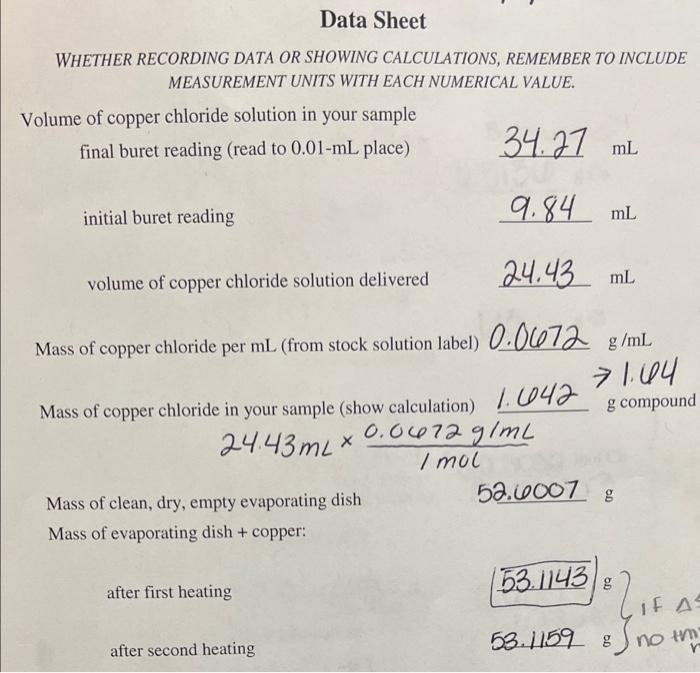 Data Sheet
WHETHER RECORDING DATA OR SHOWING CALCULATIONS, REMEMBER TO INCLUDE
MEASUREMENT UNITS WITH EACH NUMERICAL VALUE.
Volume of copper chloride solution in your sample
final buret reading (read to 0.01-mL place) 34.27 mL
initial buret reading 9.84 mL
volume of copper chloride solution delivered 24.43 mL
Mass of copper chloride per mL (from stock solution label) 0.0672 g/mL
→ 1.64
Mass of copper chloride in your sample (show calculation) 1.642 g compound
24.43mL × 0.0672 g/mL
1 mol
Mass of clean, dry, empty evaporating dish 52.6007 g
Mass of evaporating dish + copper:
after first heating 53.1143 g
IF
after second heating 53.1159 g no